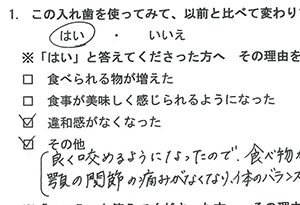 1. この入れ歯を使ってみて、以前と比べて変わり
はい ・ いいえ
※「はい」と答えてくださった方へ その理由を
□ 食べられる物が増えた
□ 食事が美味しく感じられるようになった
☑ 違和感がなくなった
☑ その他
良く咬めるようになったので、食べ物が
顎の関節の痛みがなくなり、体のバランス